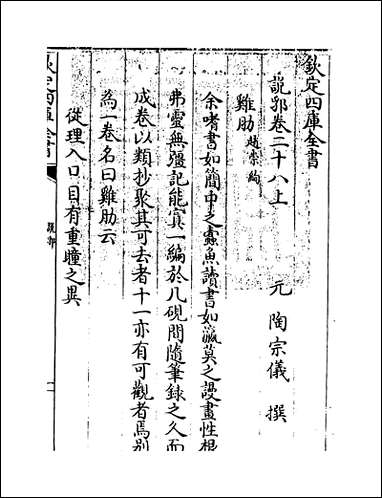 欽定四庫全書
說郛卷二十八上
元 陶宗儀 撰
雞肋 趙崇絢
余嗜書如簡中之蠹魚讀書如瀛莫之謾畫性根
弗靈無彊記能寘一編於几硯間隨筆録之久而
成卷以類抄聚其可去者十一亦有可觀者焉别
為一卷名曰雞肋云
從理入口 目有重瞳之異
欽定四庫全書
說郛